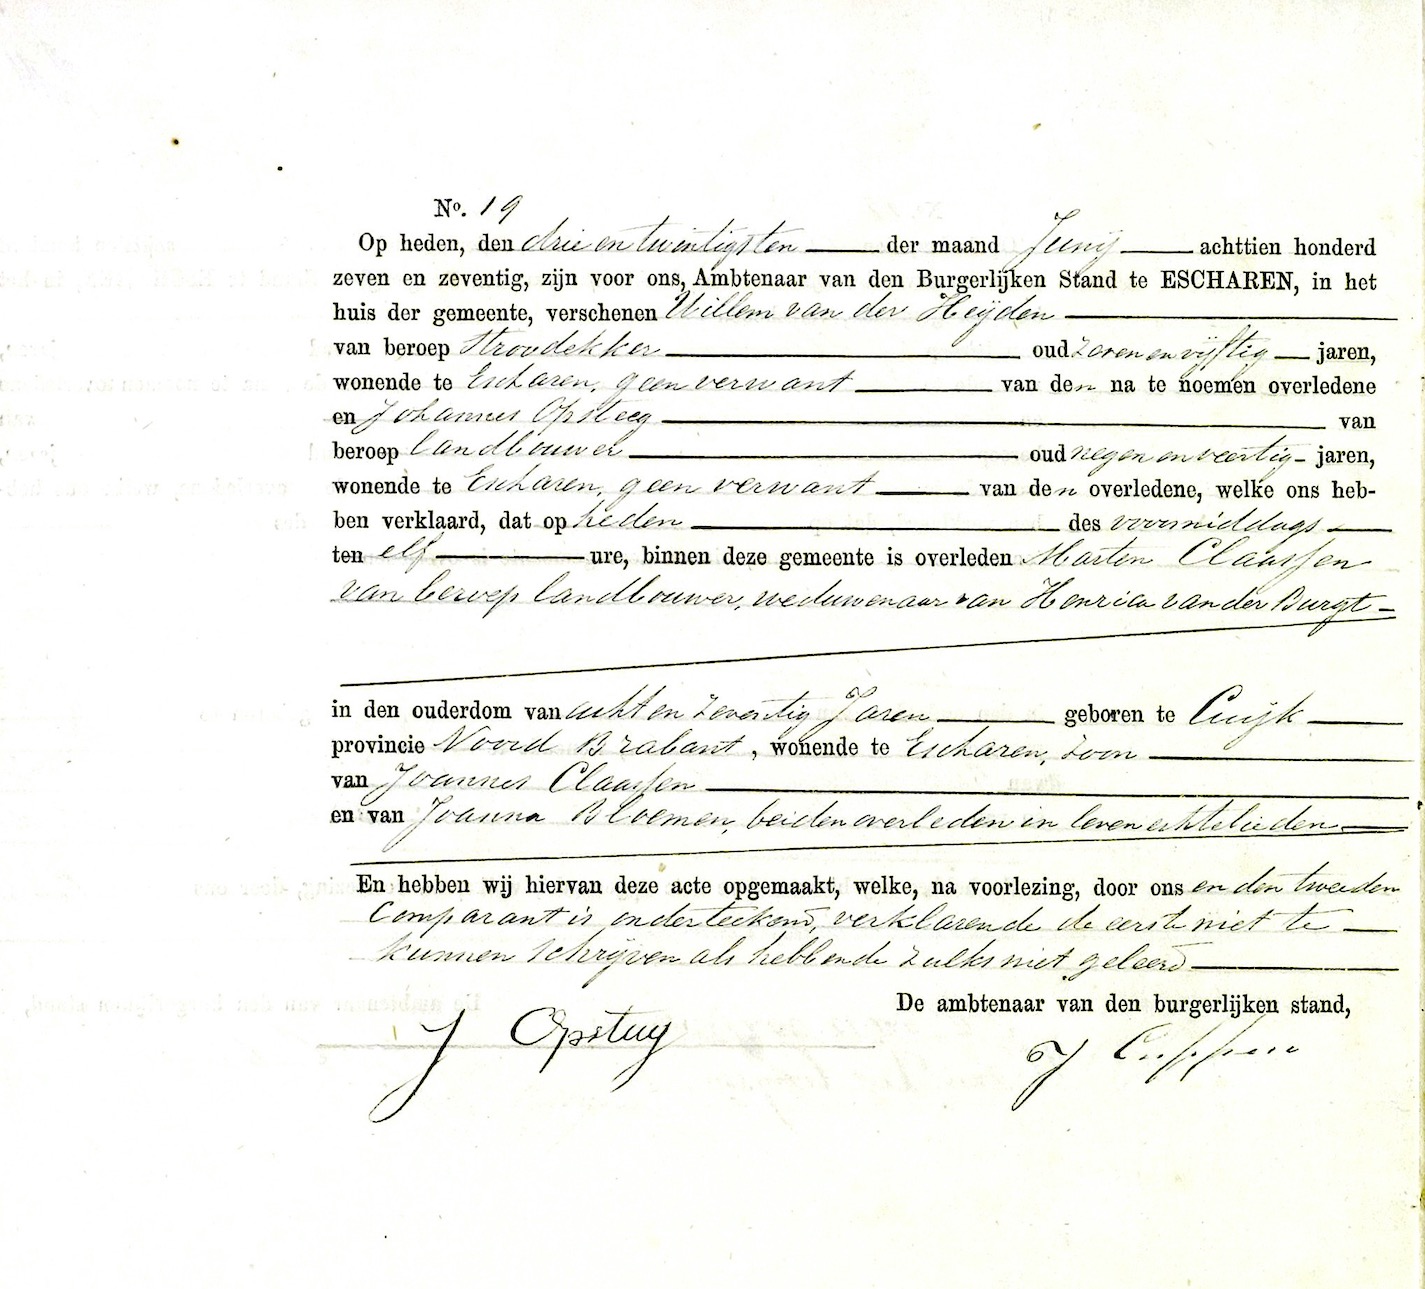 No. 19
Op heden, den drie en twintigsten der maand Junij achttien honderd
zeven en zeventig, zijn voor ons, Ambtenaar van den Burgerlijken Stand te ESCHAREN, in het
huis der gemeente, verschenen Willem van der Heijden
van beroep Stroodekker oud zeven en vijftig jaren,
wonende te Escharen, geen verwant van den na te noemen overledene
en Johannes Opsteeg van
beroep landbouwer oud negen en veertig jaren,
wonende te Escharen, geen verwant van den overledene, welke ons heb-
ben verklaard, dat op heden des voormiddags
ten elf ure, binnen deze gemeente is overleden Marten Claassen
van beroep landbouwer, weduwenaar van Henrica van der Burgt
in den ouderdom van acht en zeventig Jaren geboren te Cuijk
provincie Noord Brabant, wonende te Escharen, zoon
van Joannes Claassen
en van Joanna Bloemen, beiden overleden in leven echtelieden
En hebben wij hiervan deze acte opgemaakt, welke, na voorlezing, door ons en den tweeden
Comparant is onderteekend, verklarende de eerste niet te
kunnen schrijven als hebbende zulks niet geleerd
De ambtenaar van den burgerlijken stand,
J Opsteeg
J Cuppen